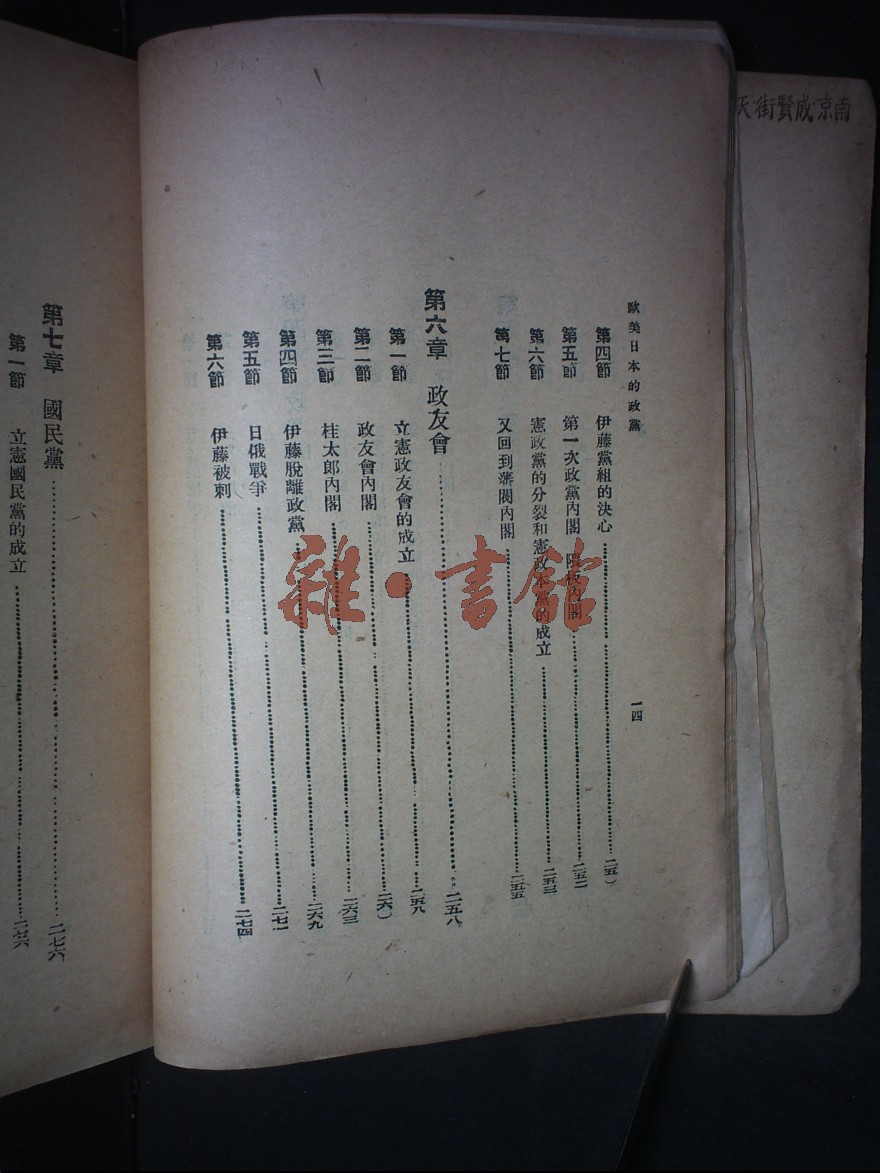 南京成賢街天
歐美日本的政黨
一四
第四節 伊藤黨組的決心
第五節 第一次政黨內閣 隈板內閣 二五二
第六節 憲政黨的分裂和憲政本黨的成立 二五三
第七節 又回到藩閥內閣 二五五
第六章 政友會 二五八
第一節 立憲政友會的成立 二五八
第二節 政友會內閣
第三節 桂太郎內閣 二六三
第四節 伊藤脫離政黨 二六九
第五節 日俄戰爭 二七一
第六節 伊藤被刺 二七四
第七章 國民黨 二七六
第一節 立憲國民黨的成立 二七六
雜·書館